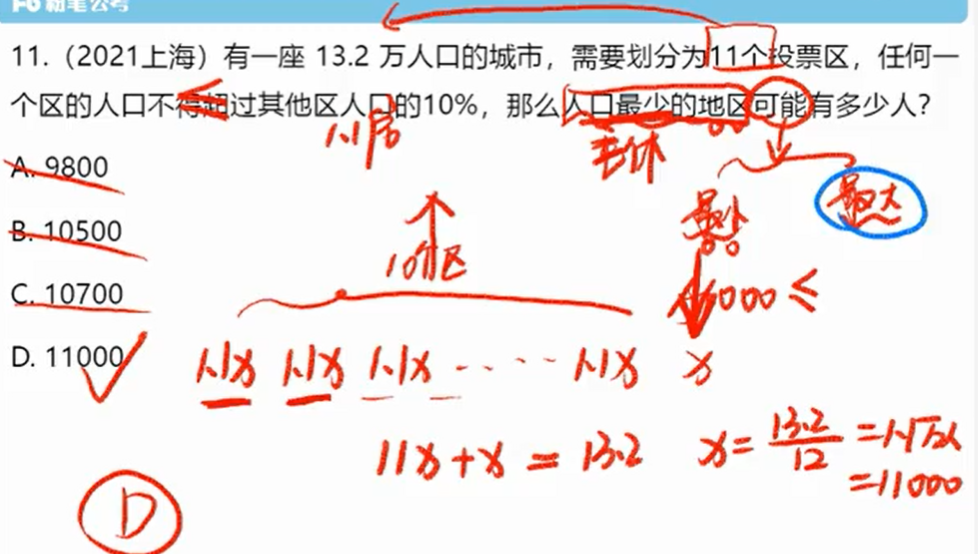 粉笔公考
11.（2021上海）有一座 13.2 万人口的城市，需要划分为11个投票区，任何一
个区的人口不得超过其他区人口的10%，那么人口最少的地区可能有多少人？
1.1倍
A. 9800
最小
最大
B. 10500
10个区
C. 10700
11000 ≤
D. 11000
1.1x 1.1x 1.1x ...... 1.1x x
11x+x = 13.2 x= 13.2/12 =1.1万人
=11000
D